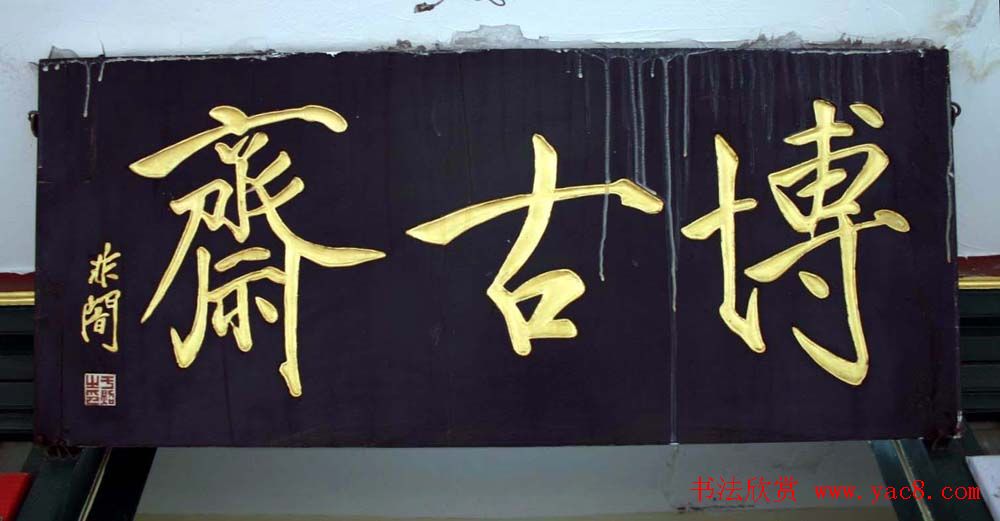 博古齋
非闇
书法欣赏 www.yac8.com